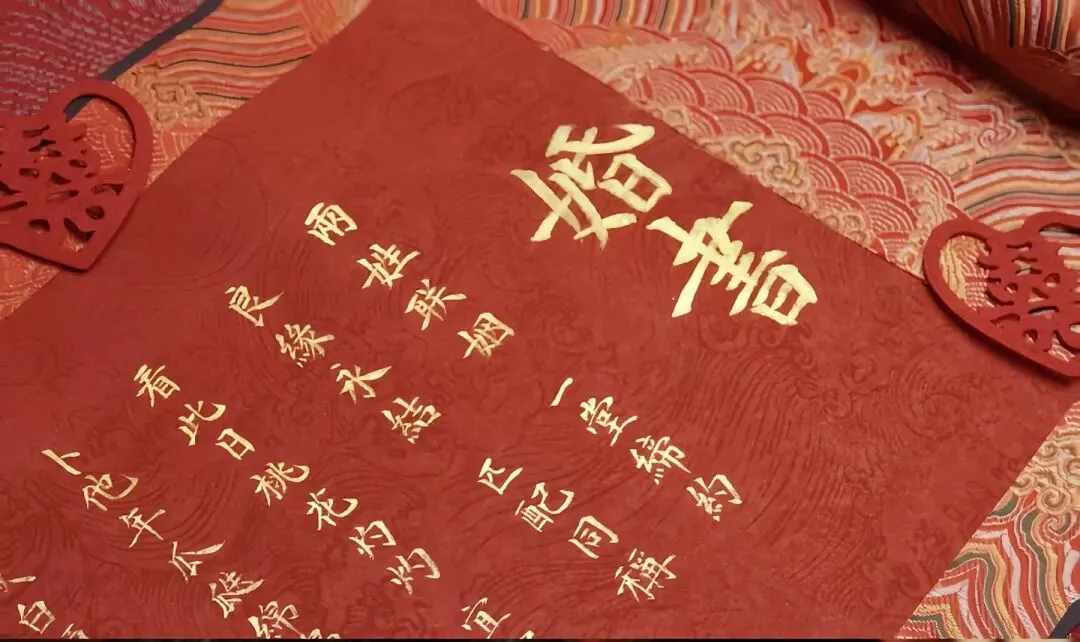 婚書
兩姓联姻 一堂締約
良緣永結 匹配同稱
看此日桃花灼灼 宜
卜他年瓜瓞綿
白